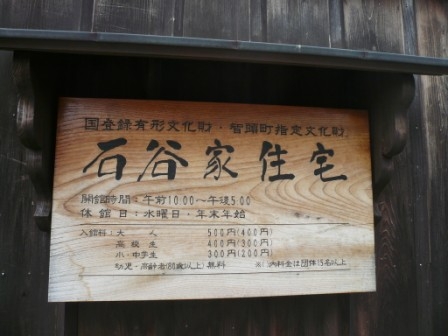 国登録有形文化財・智頭町指定文化財
石谷家住宅
開館時間:午前10:00〜午後5:00
休館日:水曜日・年末年始
入館料:大人 500円(400円)
高校生 400円(300円)
小・中学生 300円(200円)
幼児・高齢者(80歳以上)無料 ※( )内料金は団体15名以上